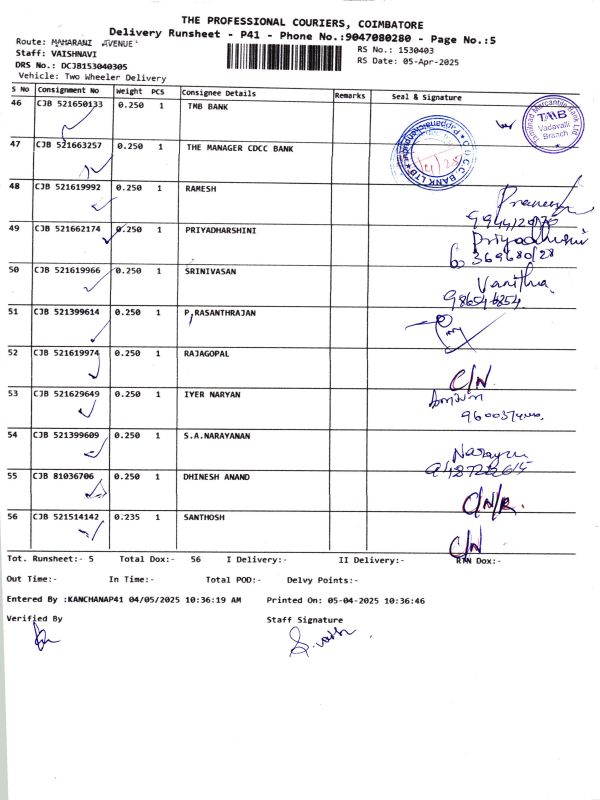 THE PROFESSIONAL COURIERS, COIMBATORE
Delivery Runsheet - P41 - Phone No.:9047080280 - Page No.:5
Route: MAHARANI AVENUE
RS No.: 1530403
Staff: VAISHNAVI
RS Date: 05-Apr-2025
DRS No.: DCJB153040305
Vehicle: Two Wheeler Delivery
S No Consignment No Weight PCS Consignee Details Remarks Seal & Signature
46 CJB 521650133 0.250 1 TMB BANK
TMB
Vadavalli
Branch
47 CJB 521663257 0.250 1 THE MANAGER CDCC BANK
48 CJB 521619992 0.250 1 RAMESH
49 CJB 521662174 0.250 1 PRIYADHARSHINI
Priyadhasini
50 CJB 521619966 0.250 1 SRINIVASAN
Vanitha
51 CJB 521399614 0.250 1 P,RASANTHRAJAN
52 CJB 521619974 0.250 1 RAJAGOPAL
C/N
53 CJB 521629649 0.250 1 IYER NARYAN
54 CJB 521399609 0.250 1 S.A.NARAYANAN
55 CJB 81036706 0.250 1 DHINESH ANAND
C/N/R.
56 CJB 521514142 0.235 1 SANTHOSH
C/N
Tot. Runsheet:- 5 Total Dox:- 56 I Delivery:- II Delivery:- RTN Dox:-
Out Time:- In Time:- Total POD:- Delvy Points:-
Entered By :KANCHANAP41 04/05/2025 10:36:19 AM Printed On: 05-04-2025 10:36:46
Verified By Staff Signature